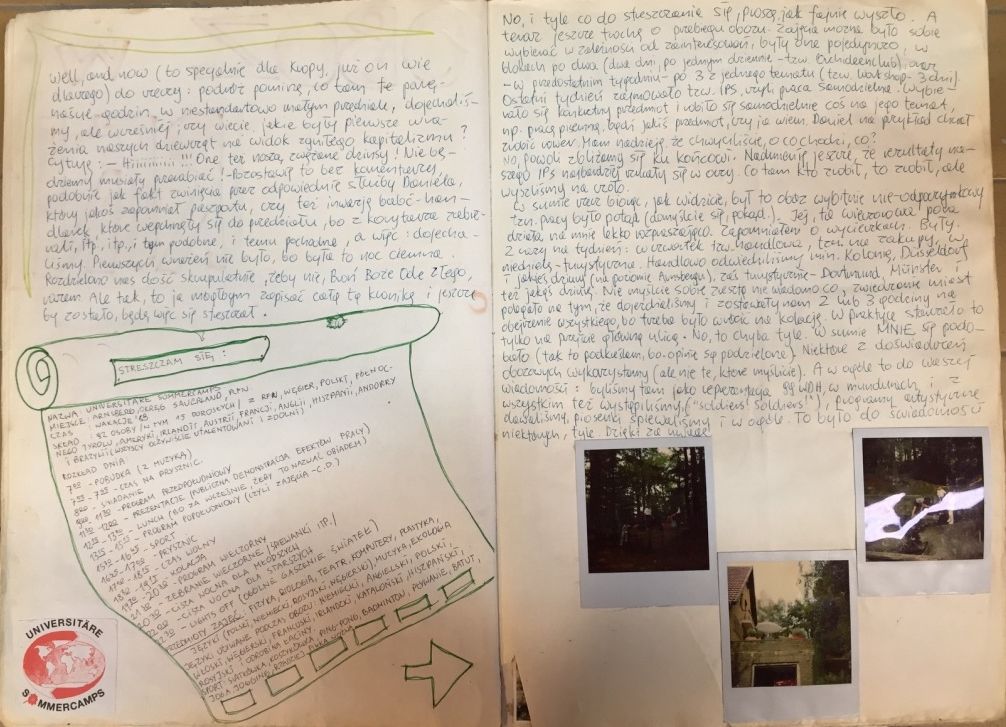 Well, and now (to specjalnie dla Kropy, już on wie
dlaczego) do rzeczy: podróż pominę, co tam te parę-
naście godzin, w niestandartowo małym przedziale, dojechaliś-
my, ale wcześniej; czy wiecie, jakie były pierwsze wra-
żenia naszych dziewcząt na widok zgniłego kapitalizmu?
Cytuję: - !!! One też noszą zwężane dżinsy! Nie bę-
dziemy musiały przerabiać! - Pozostawię to bez komentarza,
podobnie jak fakt zwinięcia przez odpowiednie służby Daniela,
który jakoś zapomniał paszportu, czy też inwazję babć-han-
dlarek, które wepchnęły się do przedziału, bo z korytarza
itp., itp., i tym podobne, i temu pochodne, a więc: dojecha-
liśmy. Pierwszych wrażeń nie było, bo była to noc ciemna.
Rozdzielono nas dość skrupulatnie, żeby nie, Broń Boże Ode Złego,
razem. Ale tak, to ja mógłbym zapisać całą tę kronikę i jeszcze
by zostało, będę więc się streszczał.
STRESZCZAM SIĘ:
NAZWA: UNIVERSITÄRE SUMMERCAMPS
MIEJSCE: ARNSBERG, OKRĘG SAUERLAND, RFN
CZAS: WAKACJE '89
SKŁAD: 92 OSOBY (W TYM 15 DOROSŁYCH) Z RFN, WĘGIER, POLSKI, PÓŁNOC-
NEGO TYROLU, AMERYKI, IRLANDII, AUSTRII, FRANCJI, ANGLII, HISZPANII, ANDORRY
I BRAZYLII (WSZYSCY OCZYWIŚCIE UTALENTOWANI I ZDOLNI)
ROZKŁAD DNIA:
7:00 - POBUDKA (Z MUZYKĄ)
- CZAS NA PRYSZNIC.
- ŚNIADANIE
- PROGRAM PRZEDPOŁUDNIOWY
- PREZENTACJE (PUBLICZNA DEMONSTRACJA EFEKTÓW PRACY)
- LUNCH (BO ZA WCZEŚNIE, ŻEBY TO NAZWAĆ OBIADEM)
- PROGRAM POPOŁUDNIOWY (CZYLI ZAJĘCIA - C.D.)
- SPORT
- PRYSZNIC
- CZAS WOLNY
- KOLACJA
- PROGRAM WIECZORNY
- ZEBRANIE WIECZORNE (ŚPIEWANKI ITP.)
- CISZA NOCNA DLA MŁODSZYCH
- CISZA NOCNA DLA STARSZYCH
- LIGHTS OFF (OGÓLNE GASZENIE ŚWIATEŁ)
PRZEDMIOTY ZAJĘĆ: FIZYKA, BIOLOGIA, TEATR, KOMPUTERY, PLASTYKA,
JĘZYKI (POLSKI, NIEMIECKI, ROSYJSKI, WĘGIERSKI), MUZYKA, EKOLOGIA
JĘZYKI UŻYWANE PODCZAS OBOZU: NIEMIECKI, ANGIELSKI, POLSKI,
WŁOSKI, WĘGIERSKI, FRANCUSKI, IRLANDZKI, KATALOŃSKI, HISZPAŃSKI,
ROSYJSKI I ODROBINA ŁACINY
SPORT: SIATKÓWKA, KOSZYKÓWKA, PING-PONG, BADMINTON, PŁYWANIE, BATUT,
JOGA, JOGGING, RZADZIEJ PIŁKA NOŻNA
UNIVERSITÄRE
SOMMERCAMPS
No, i tyle co do streszczania się, proszę, jak fajnie wyszło. A
teraz jeszcze trochę o przebiegu obozu. Zajęcia można było sobie
wybierać w zależności od zainteresowań, były one pojedynczo, w
blokach po dwa (dwa dni, po jednym dziennie - tzw. Orchideenclub), oraz
- w przedostatnim tygodniu - po 3 z jednego tematu (tzw. workshop - 3 dni).
Ostatni tydzień zajmowało tzw. IPS, czyli praca samodzielna. Wybie-
rało się konkretny przedmiot i robiło się samodzielnie coś na jego temat,
np. pracę pisemną, bądź jakiś przedmiot, czy ja wiem. Daniel na przykład chciał
zrobić rower. Mam nadzieję, że chwyciliście, o co chodzi, co?
No, powoli zbliżamy się ku końcowi. Nadmienię jeszcze, że rezultaty na-
szego IPS najbardziej rzucały się w oczy. Co tam kto zrobił, to zrobił, ale
wyszliśmy na czoło.
W sumie rzecz biorąc, jak widzicie, był to obóz wybitnie nie-odpoczynkowy
tzn. pracy było potąd (domyślcie się, pokąd). Jej, ta wieczorowa pora
działa na mnie lekko rozpraszająco. Zapomniałem o wycieczkach. Były.
2 razy na tydzień: w czwartek tzw. handlowa, tzn. na zakupy, i w
niedzielę - turystyczna. Handlowo odwiedziliśmy m.in. Kolonię, Düsseldorf
i jakieś dziury (na poziomie Arnsbergu), zaś turystycznie - Dortmund, Münster i
też jakąś dziurę. Nie myślcie sobie zresztą nie wiadomo co, zwiedzanie miast
polegało na tym, że dojeżdżaliśmy i zostawały nam 2 lub 3 godziny na
obejrzenie wszystkiego, bo trzeba było wrócić na kolację. W praktyce starczało to
tylko na przejście główną ulicą. No, to chyba tyle. W sumie MNIE się podo-
bało (tak to podkreślam, bo opinie są podzielone). Niektóre z doświadczeń
obozowych wykorzystamy (ale nie te, które myślicie). A w ogóle to do waszej
wiadomości: byliśmy tam jako reprezentacja 99 WDH, w mundurach, i z
wszystkim też wystąpiliśmy, ("soldiers! Soldiers!"), programy artystyczne
dawaliśmy, piosenki śpiewaliśmy i w ogóle. To było do świadomości
niektórych, tyle. Dzięki za uwagę